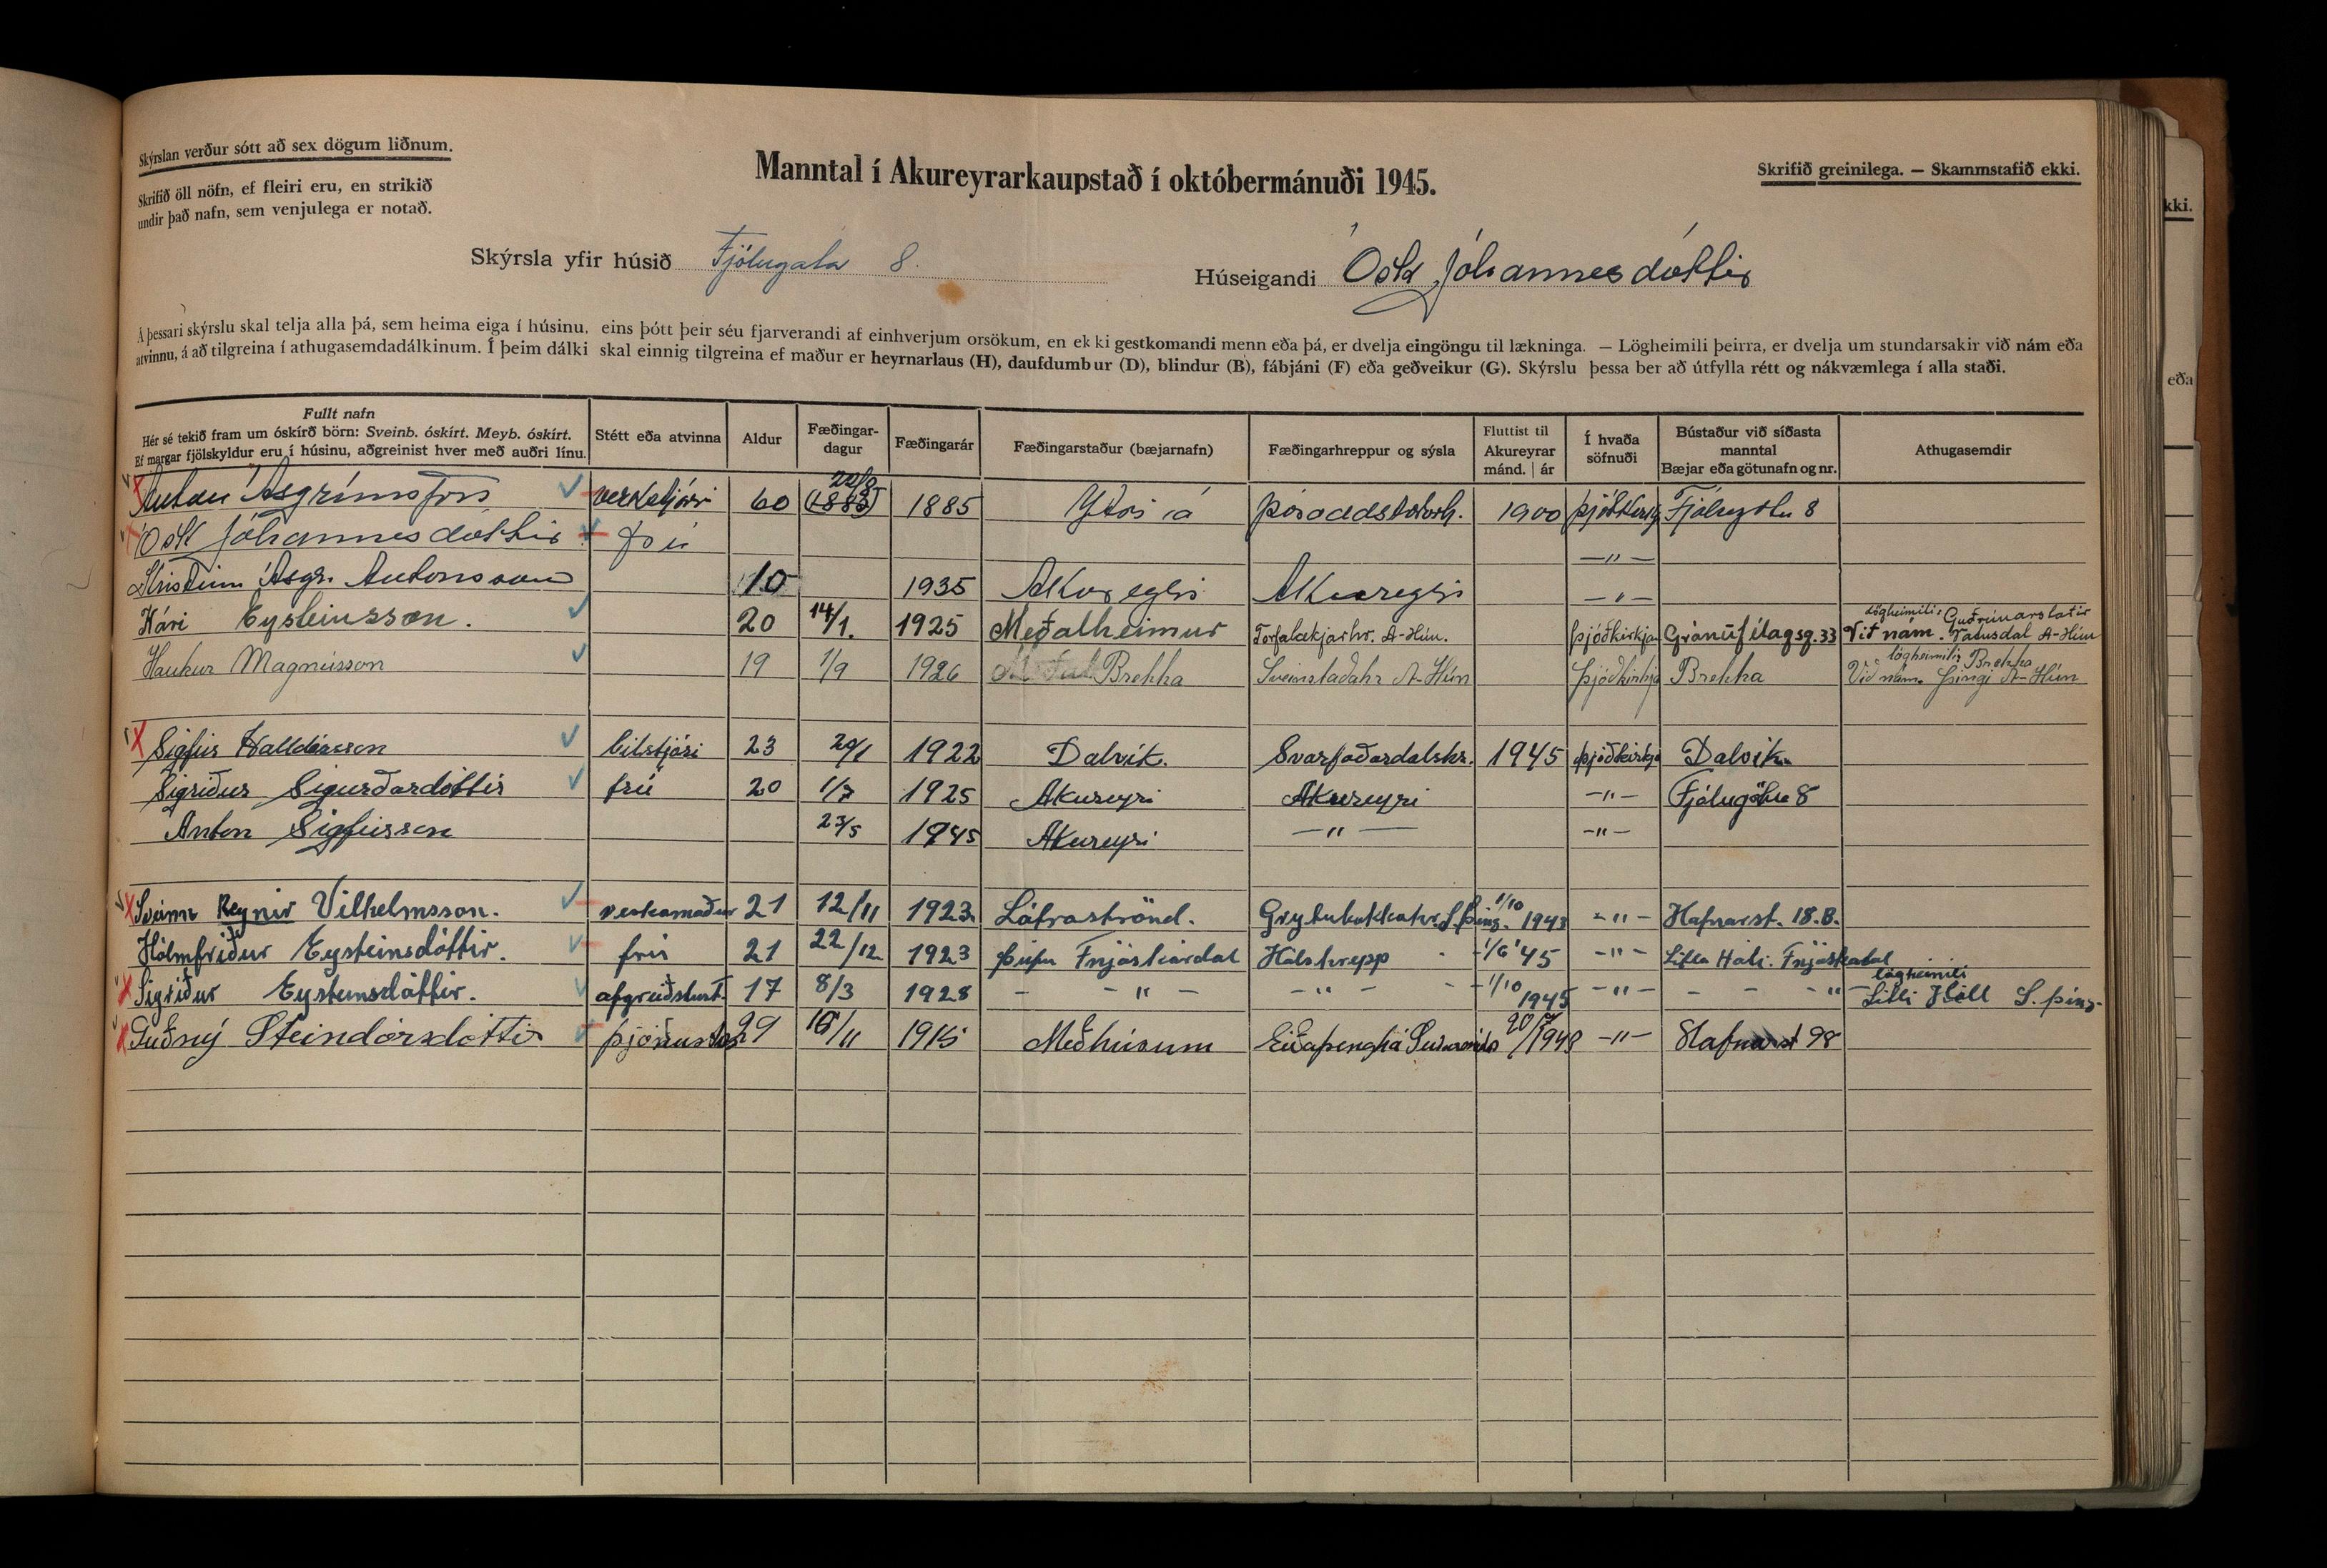 Skýrslan verður sótt að sex dögum liðnum.
Skrifið öll nöfn, ef fleiri eru, en strikið
undir það nafn, sem venjulega er notað.
Manntal í Akureyrarkaupstað í októbermánuði 1945.
Skrifið greinilega. — Skammstafið ekki.
kki.
Skýrsla yfir húsið Fjólugata 8.
Húseigandi Ósk Jóhannesdóttir
Á þessari skýrslu skal telja alla þá, sem heima eiga í húsinu, eins þótt þeir séu fjarverandi af einhverjum orsökum, en ekki gestkomandi menn eða þá, er dvelja eingöngu til lækninga. — Lögheimili þeirra, er dvelja um stundarsakir við nám eða
atvinnu, á að tilgreina í athugasemdadálkinum. Í þeim dálki skal einnig tilgreina ef maður er heyrnarlaus (H), daufdumbur (D), blindur (B), fábjáni (F) eða geðveikur (G). Skýrslu þessa ber að útfylla rétt og nákvæmlega í alla staði.
eða
Fullt nafn
Hér sé tekið fram um óskírð börn: Sveinb. óskírt. Meyb. óskírt.
Ef margar fjölskyldur eru í húsinu, aðgreinist hver með auðri línu.
Stétt eða atvinna
Aldur
Fæðingar-
dagur
Fæðingarár
Fæðingarstaður (bæjarnafn)
Fæðingarhreppur og sýsla
Fluttist til
Akureyrar
mánd. | ár
Í hvaða
söfnuði
Bústaður við síðasta
manntal
Bæjar eða götunafn og nr.
Athugasemdir
Anton Ásgrímsson verkstjóri 60 1885 Ytri á 1900 þjóðkirkj Fjólugötu 8
Ósk Jóhannesdóttir frú —"—
Kristinn Ásgr. Antonsson 10 1935 Akureyri Akureyri —"—
Kári Eysteinsson. 20 14/1. 1925 Meðalheimur Torfalækjarhr. A-Hún. þjóðkirkja Gránufélagsg. 33 Við nám. lögheimili: Guðrúnarstaðir Vatnsdal A-Hún
Haukur Magnússon 19 1/9 1926 Brekka Sveinstaðahr A-Hún þjóðkirkja Brekka Við nám. lögheimili: Brekka Þingi A-Hún
Sigfús Halldórsson bilstjóri 23 29/1 1922 Dalvík. Svarfaðardalshr. 1945 þjóðkirkja Dalvík
Sigríður Sigurðardóttir frú 20 1/7 1925 Akureyri Akureyri —"— Fjólugötu 8
Anton Sigfússon 23/5 1945 Akureyri —"— —"—
Sveinn Reynir Vilhelmsson. verkamaður 21 12/11 1923 Látraströnd. Grýtubakkahr. S. Þing. 1/10 1943 —"— Hafnarst. 18. B.
Hólmfríður Eysteinsdóttir. frú 21 22/12 1923 Þúfu Fnjóskárdal Hálshrepp 1/6 '45 —"— Litla Fnjóskadal
Sigríður Eysteinsdóttir. afgreiðslust. 17 8/3 1928 — " — — " — 1/10 1945 —"— — " — lögheimili Litli S. Þing.
Guðný Steindórsdóttir 29 16/11 —"— Hafnarst 98